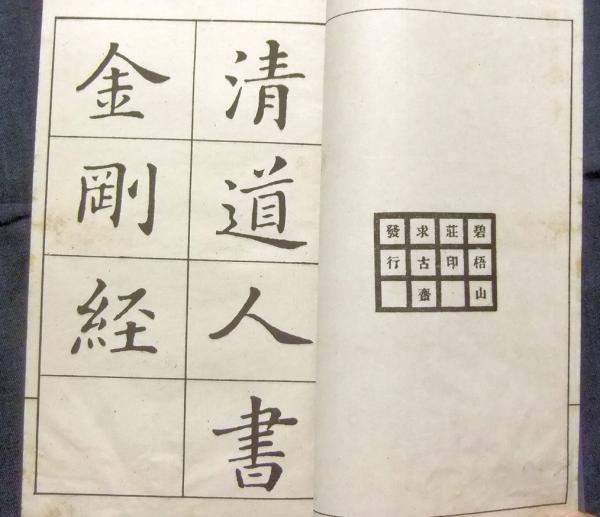 清道人書
金剛経
碧梧山
莊印
求古齋
發行